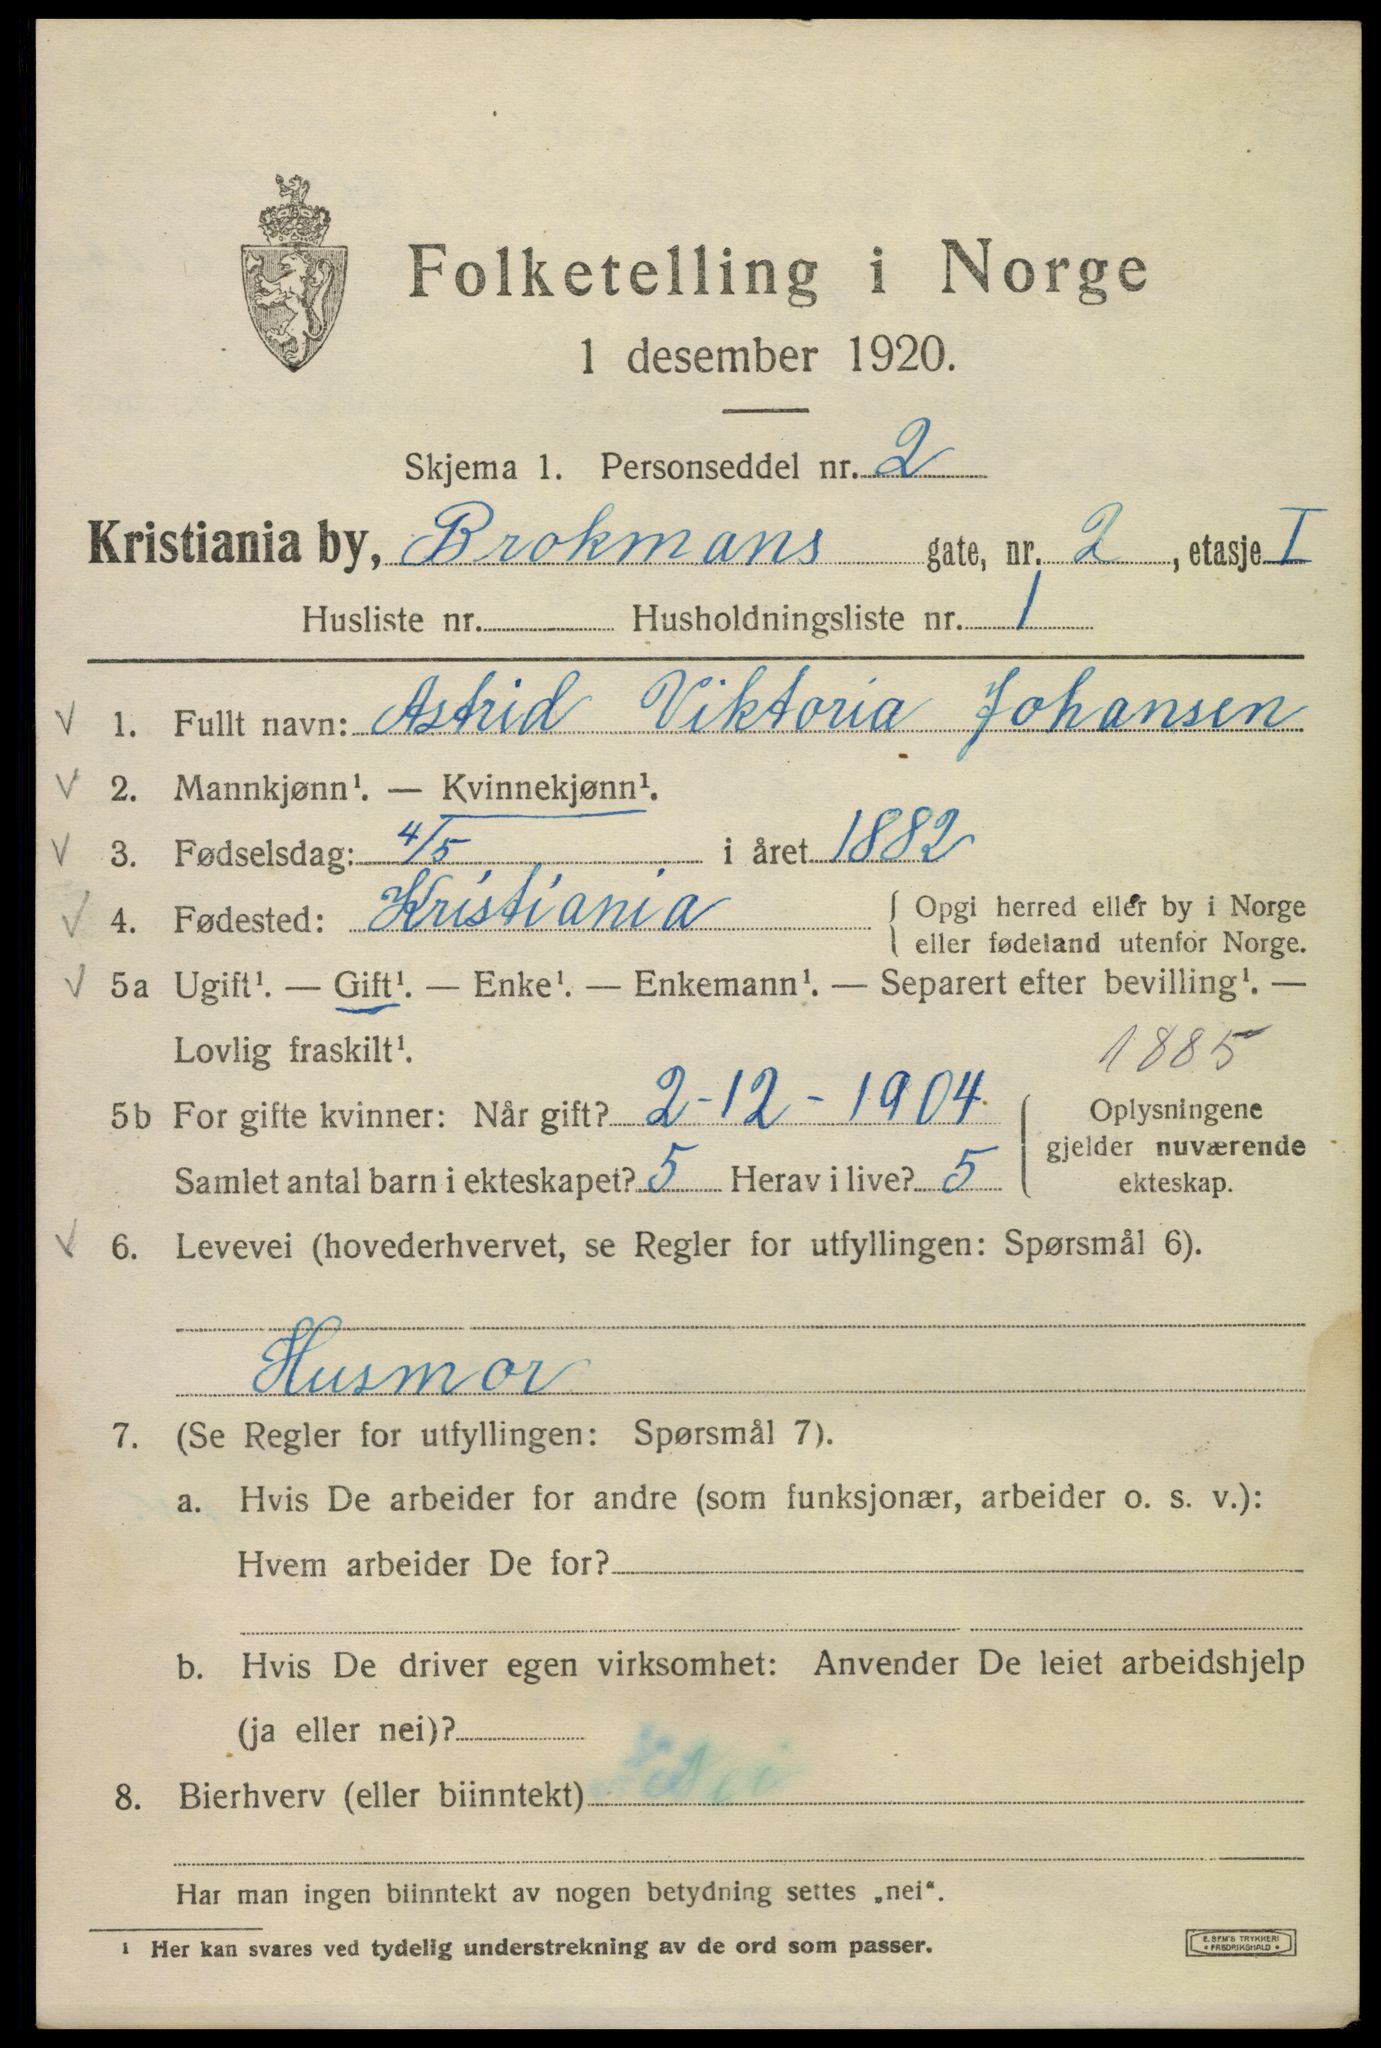 Folketelling i Norge
1 desember 1920.
Skjema 1. Personseddel nr. 2
Kristiania by, Brokmans gate, nr. 2, etasje I
Husliste nr. Husholdningsliste nr. 1
1. Fullt navn: Astrid Viktoria Johansen
2. Mannkjønn¹. — Kvinnekjønn¹.
3. Fødselsdag: 4/5 i året 1882
4. Fødested: Kristiania
Opgi herred eller by i Norge
eller fødeland utenfor Norge.
5a Ugift¹. — Gift¹. — Enke¹. — Enkemann¹. — Separert efter bevilling¹. —
Lovlig fraskilt¹.
1885
5b For gifte kvinner: Når gift? 2-12-1904
Samlet antal barn i ekteskapet? 5 Herav i live? 5
Oplysningene
gjelder nuværende
ekteskap.
6. Levevei (hovederhvervet, se Regler for utfyllingen: Spørsmål 6).
Husmor
7. (Se Regler for utfyllingen: Spørsmål 7).
a. Hvis De arbeider for andre (som funksjonær, arbeider o. s. v.):
Hvem arbeider De for?
b. Hvis De driver egen virksomhet: Anvender De leiet arbeidshjelp
(ja eller nei)?
8. Bierhverv (eller biinntekt) Nei
Har man ingen biinntekt av nogen betydning settes „nei“.
¹ Her kan svares ved tydelig understrekning av de ord som passer.
E. SEM'S TRYKKERI
• FREDRIKSHALD •